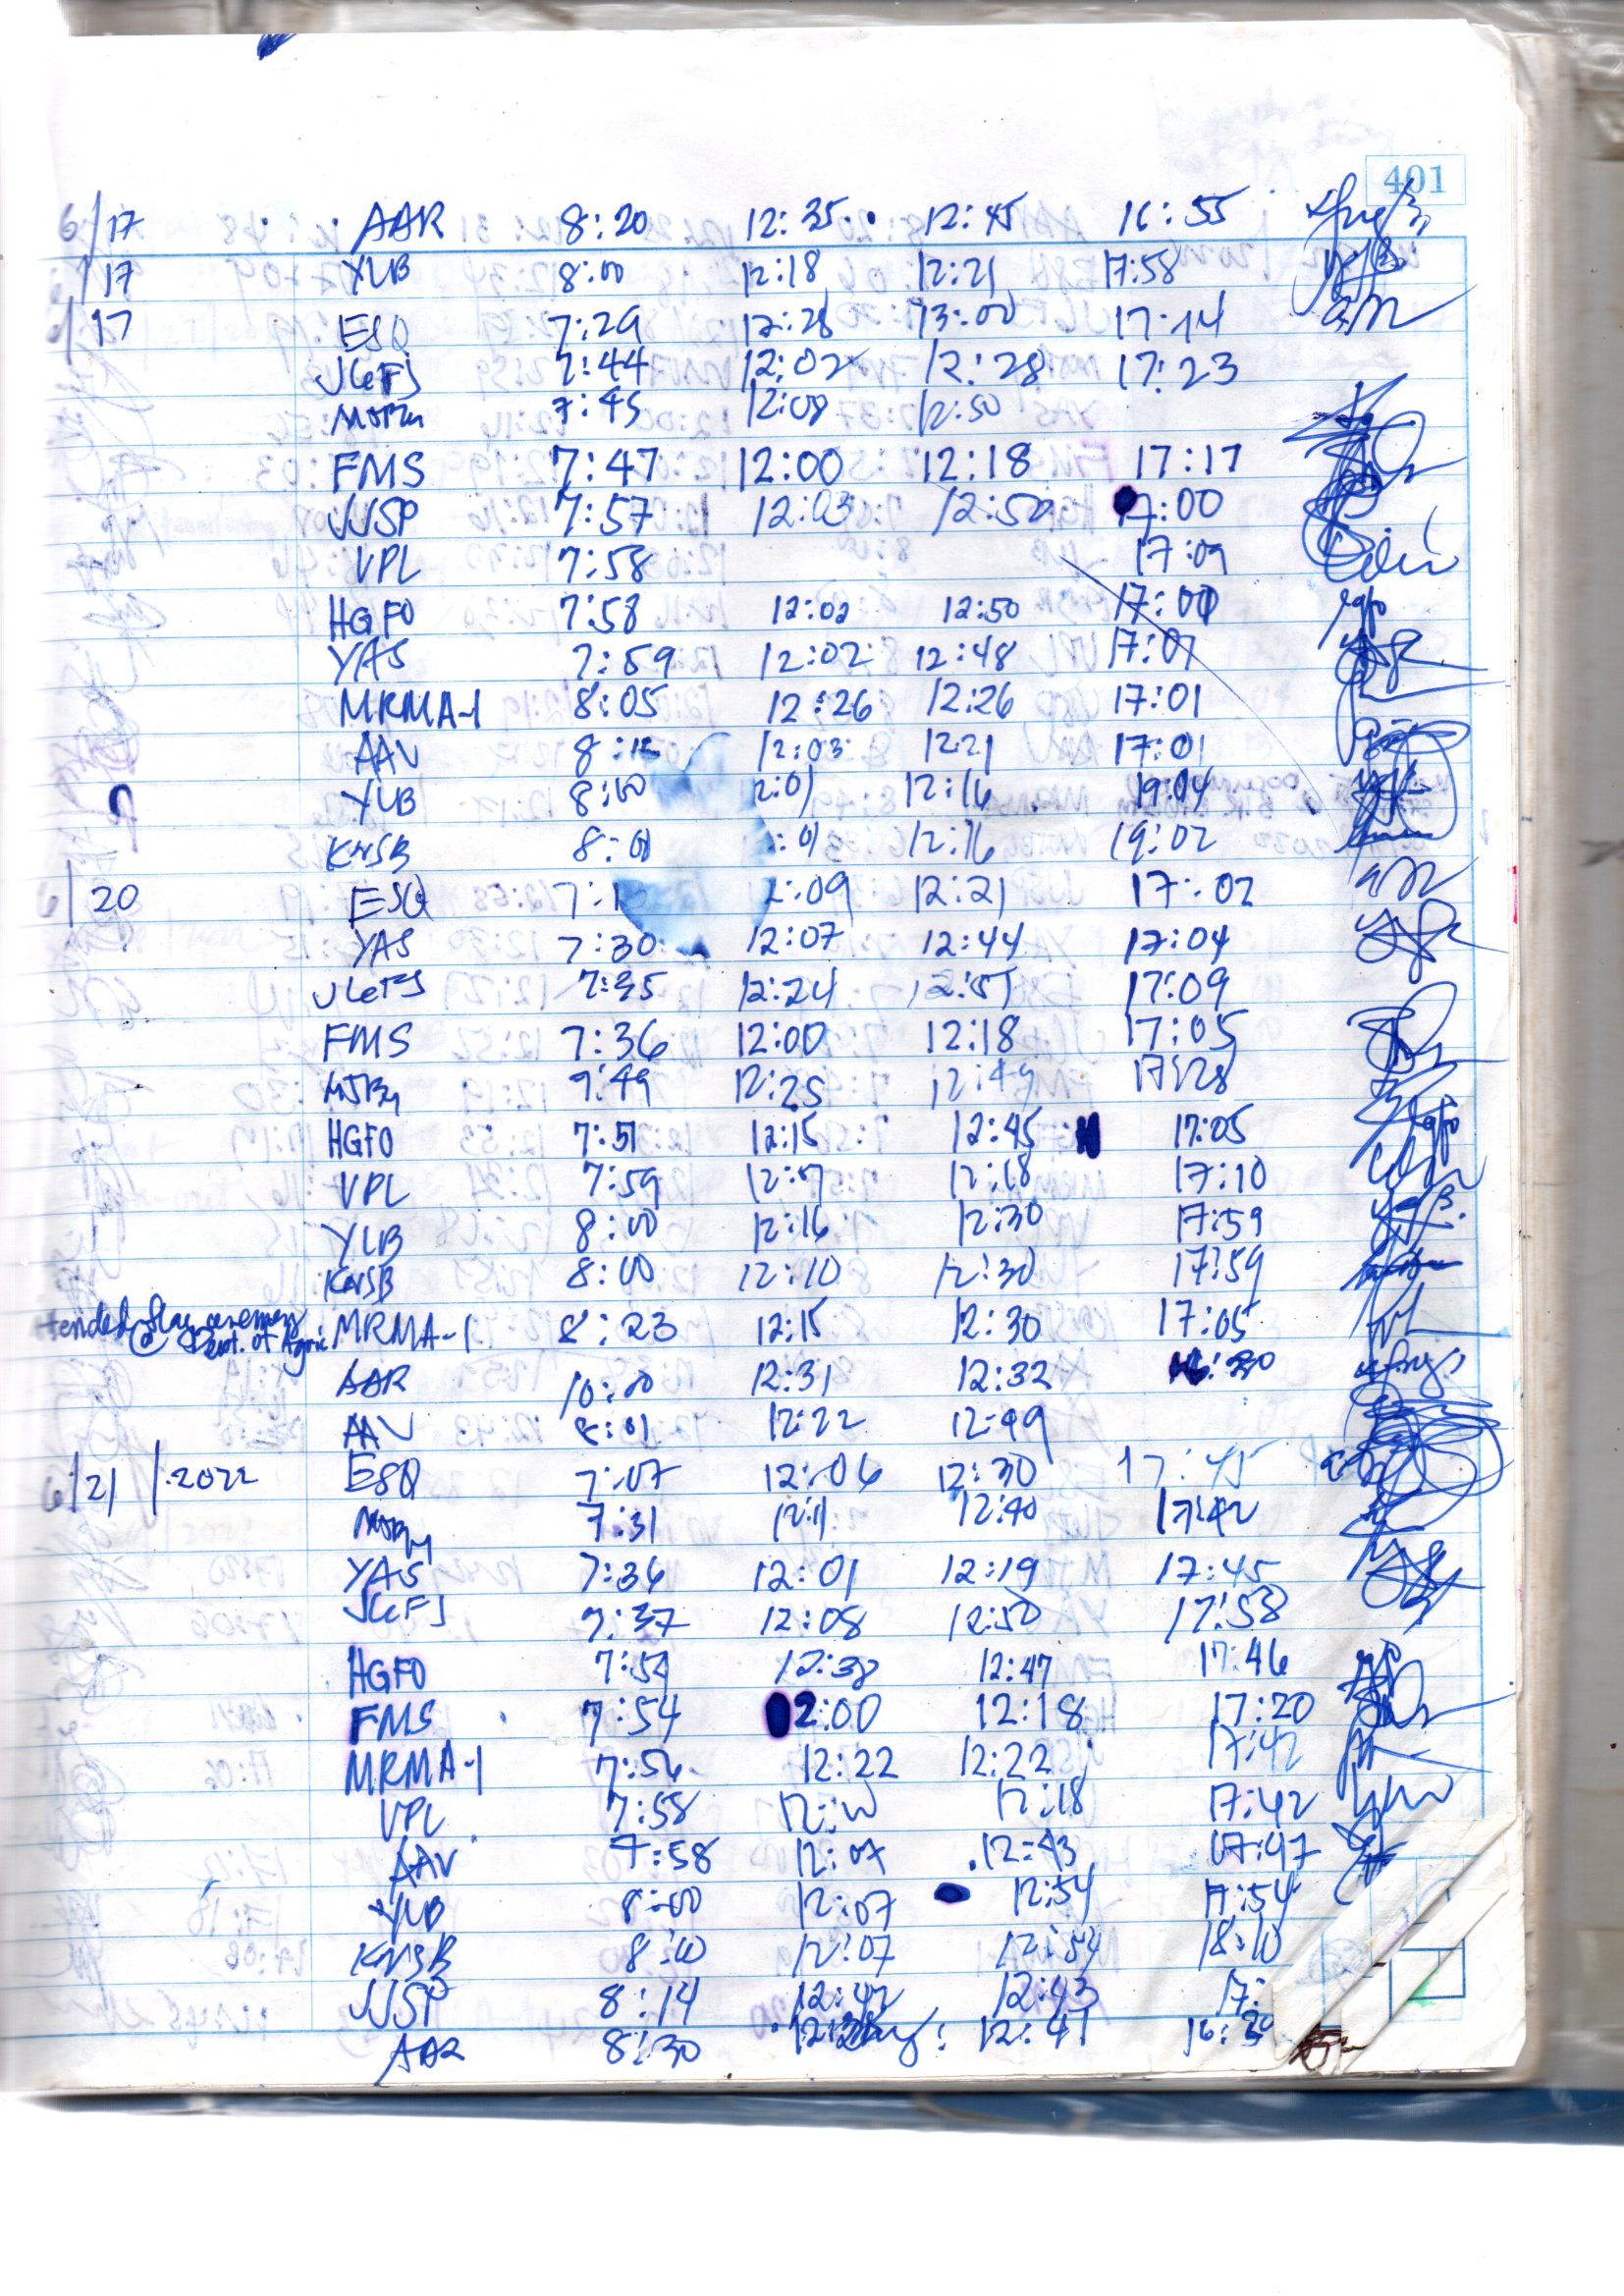 401
6/17 AAR 8:20 12:35 12:45 16:55
/17 YLB 8:00 12:18 12:21 17:58
6/17 ESQ 7:29 12:28 13:00 17:14
JGFJ 7:44 12:02 12:28 17:23
7:45 12:08 12:50
FMS 7:47 12:00 12:18 17:17
JJSP 7:57 12:03 12:50 17:00
VPL 7:58 17:09
HGFO 7:58 12:02 12:50 17:00
YAS 7:59 12:02 12:48 17:01
MRMA-1 8:05 12:26 12:26 17:01
AAV 12:03 12:21 17:01
YLB 8:00 2:01 12:16 19:04
KNSB 8:00 :01 12:16 19:02
6/20 ESQ 2:09 12:21 17:02
YAS 7:30 12:07 12:44 17:04
JGFJ 7:35 12:24 12:51 17:09
FMS 7:36 12:00 12:18 17:05
7:49 12:25 12:49 17:28
HGFO 7:51 12:15 12:45 17:05
VPL 7:59 12:18 17:10
YLB 8:00 12:16 12:30 17:59
KNSB 8:00 12:10 12:30 17:59
tended flag ceremony
@ Dept. of Agric MRMA-1 8:23 12:15 12:30 17:05
AAR 10:00 12:31 12:32
AAV 8:01 12:22 12:49
6/21/2022 ESQ 7:07 12:06 12:30 17:45
7:31 12:11 12:40 17:42
YAS 7:36 12:01 12:19 17:45
JGFJ 7:37 12:08 12:50 17:58
HGFO 7:54 12:38 12:47 17:46
FMS 7:54 12:00 12:18 17:20
MRMA-1 7:56 12:22 12:22 17:42
VPL 7:58 12:18 17:42
AAV 7:58 12:07 12:43 17:47
YLB 8:00 12:07 12:54 17:54
KNSB 8:00 12:07 12:54 18:10
JJSP 8:14 12:42 12:43 17:
AAR 8:30 12:41